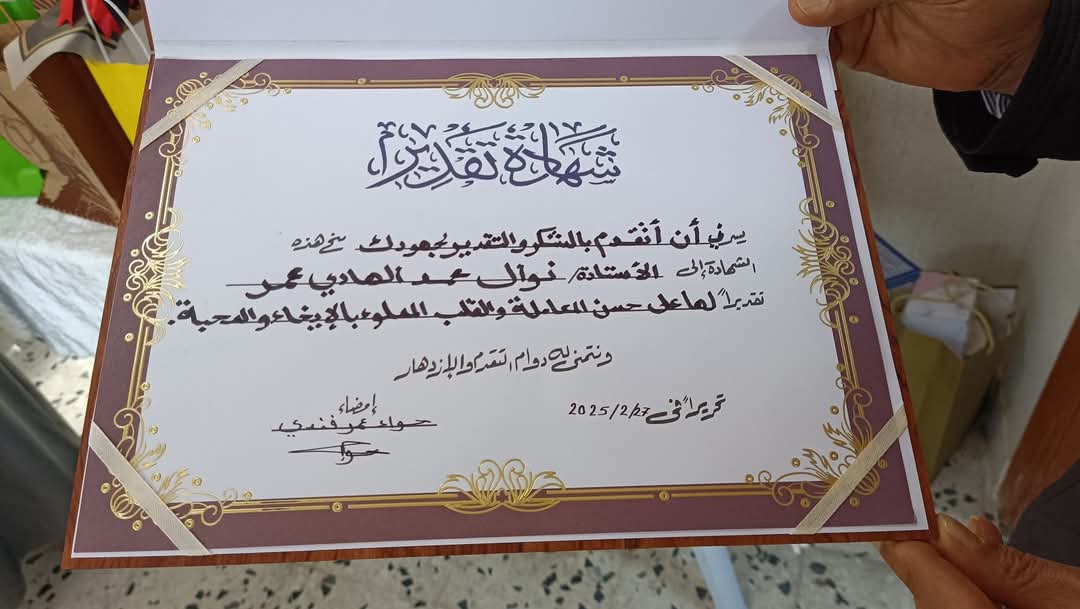 شهادة تقدير
يسرني أن أتقدم بالشكر والتقدير لجهودك منح هذه
الشهادة إلى الأستاذة/ نوال محمد الهادي عمر
تقديراً لها على حسن المعاملة والقلب المملوء بالإيخاء والمحبة.
ونتمنى له دوام التقدم والإزدهار
تحريراً في 2025/2/27
إمضاء
حواء عمر فندي
حواء